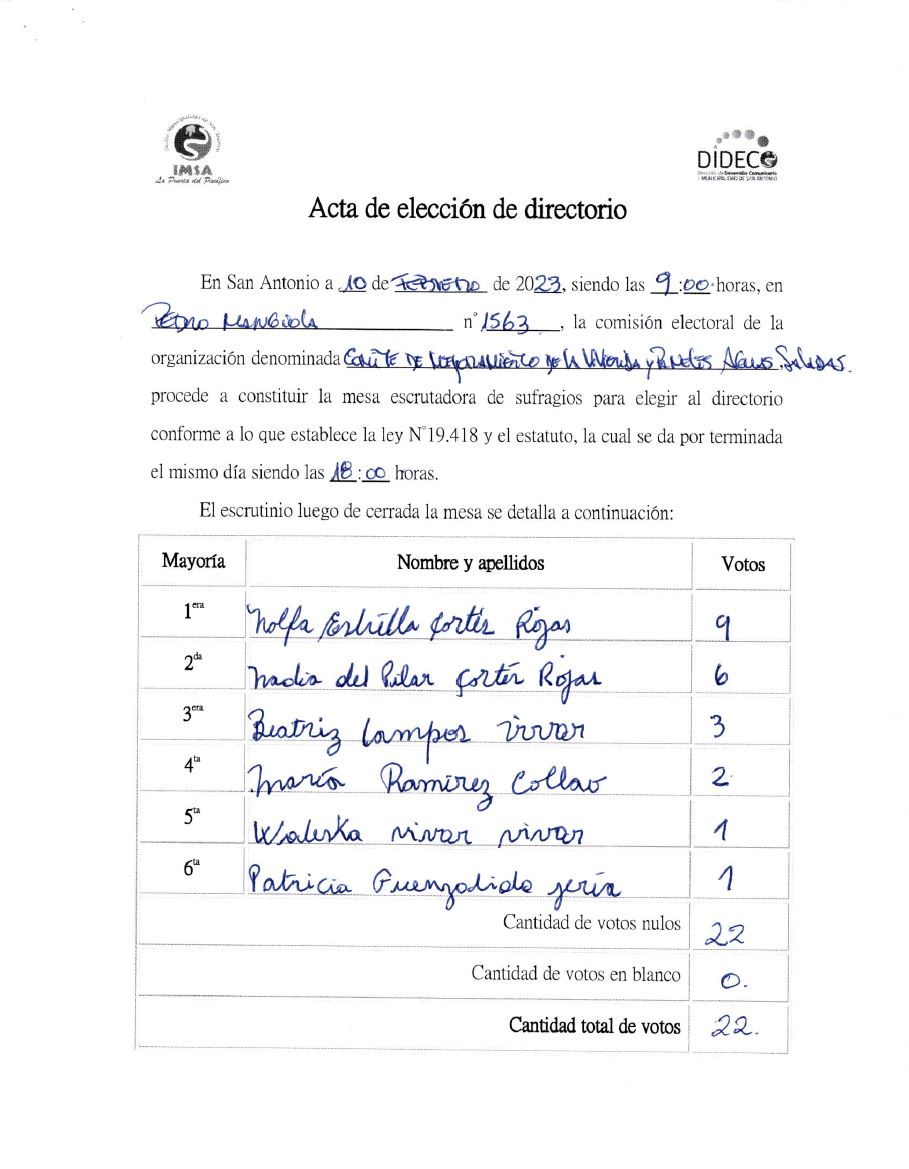 IMSA
La Puerta del Pacífico
DIDECO
Dirección de Desarrollo Comunitario
I. MUNICIPALIDAD DE SAN ANTONIO
Acta de elección de directorio
En San Antonio a 10 de FEBRERO de 2023, siendo las 9:00 horas, en
n° 1563, la comisión electoral de la
organización denominada Comité de Mejoramiento de la Vivienda y Aguas Saladas.
procede a constituir la mesa escrutadora de sufragios para elegir al directorio
conforme a lo que establece la ley N°19.418 y el estatuto, la cual se da por terminada
el mismo día siendo las 18:00 horas.
El escrutinio luego de cerrada la mesa se detalla a continuación:
Mayoría Nombre y apellidos Votos
1era Nolfa Estrella Cortés Rojas 9
2da Nadia del Pilar Cortés Rojas 6
3era Beatriz Campos Vivar 3
4ta María Ramirez Collao 2
5ta Waleska vivar vivar 1
6ta Patricia jería 1
Cantidad de votos nulos 22
Cantidad de votos en blanco 0.
Cantidad total de votos 22.